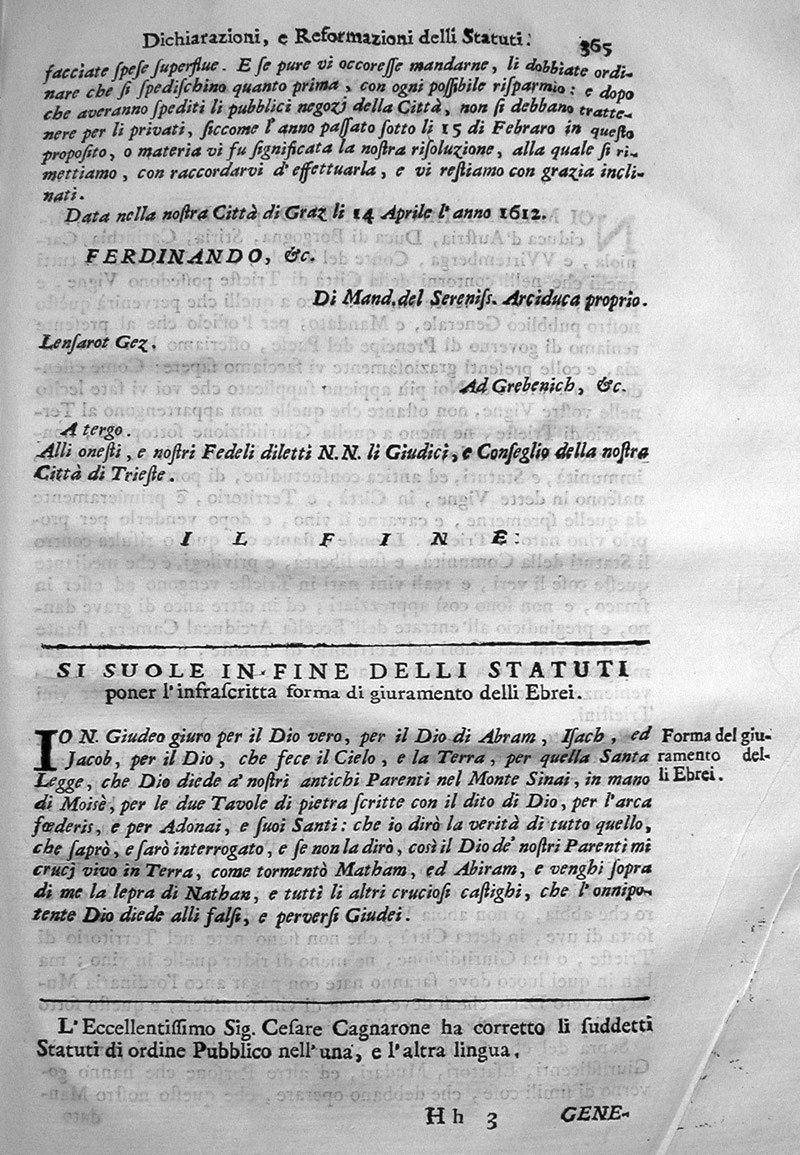 Dichiarazioni, e Reformazioni delli Statuti. 365
facciate ſpeſe ſuperflue. E ſe pure vi occoreſſe mandarne, li dobbiate ordi-
nare che ſi ſpediſchino quanto prima, con ogni poſſibile riſparmio: e dopo
che averanno ſpediti li pubblici negozj della Città, non ſi debbano tratte-
nere per li privati, ſiccome l'anno paſſato ſotto li 15 di Febraro in queſto
propoſito, o materia vi fu ſignificata la noſtra riſoluzione, alla quale ſi ri-
mettiamo, con raccordarvi d'effettuarla, e vi reſtiamo con grazia incli-
nati.
Data nella noſtra Città di Graz li 14 Aprile l'anno 1612.
FERDINANDO, &c.
Di Mand. del Sereniſs. Arciduca proprio.
Lenſarot Gez.
Ad Grebenich, &c.
A tergo.
Alli oneſti, e noſtri Fedeli diletti N.N. li Giudici, e Conſeglio della noſtra
Città di Trieſte.
I L F I N E.
SI SUOLE IN FINE DELLI STATUTI
poner l'infraſcritta forma di giuramento delli Ebrei.
IO N. Giudeo giuro per il Dio vero, per il Dio di Abram, Iſach, ed
Jacob, per il Dio, che fece il Cielo, e la Terra, per quella Santa
Legge, che Dio diede a' noſtri antichi Parenti nel Monte Sinai, in mano
di Moisè, per le due Tavole di pietra ſcritte con il dito di Dio, per l'arca
fœderis, e per Adonai, e ſuoi Santi: che io dirò la verità di tutto quello,
che ſaprò, e ſarò interrogato, e ſe non la dirò, così il Dio de' noſtri Parenti mi
crucj vivo in Terra, come tormentò Matham, ed Abiram, e venghi ſopra
di me la lepra di Nathan, e tutti li altri crucioſi caſtighi, che l'onnipo-
tente Dio diede alli falſi, e perverſi Giudei.
Forma del giu-
ramento del-
li Ebrei.
L'Eccellentiſſimo Sig. Ceſare Cagnarone ha corretto li ſuddetti
Statuti di ordine Pubblico nell'una, e l'altra lingua.
Hh 3 GENE-